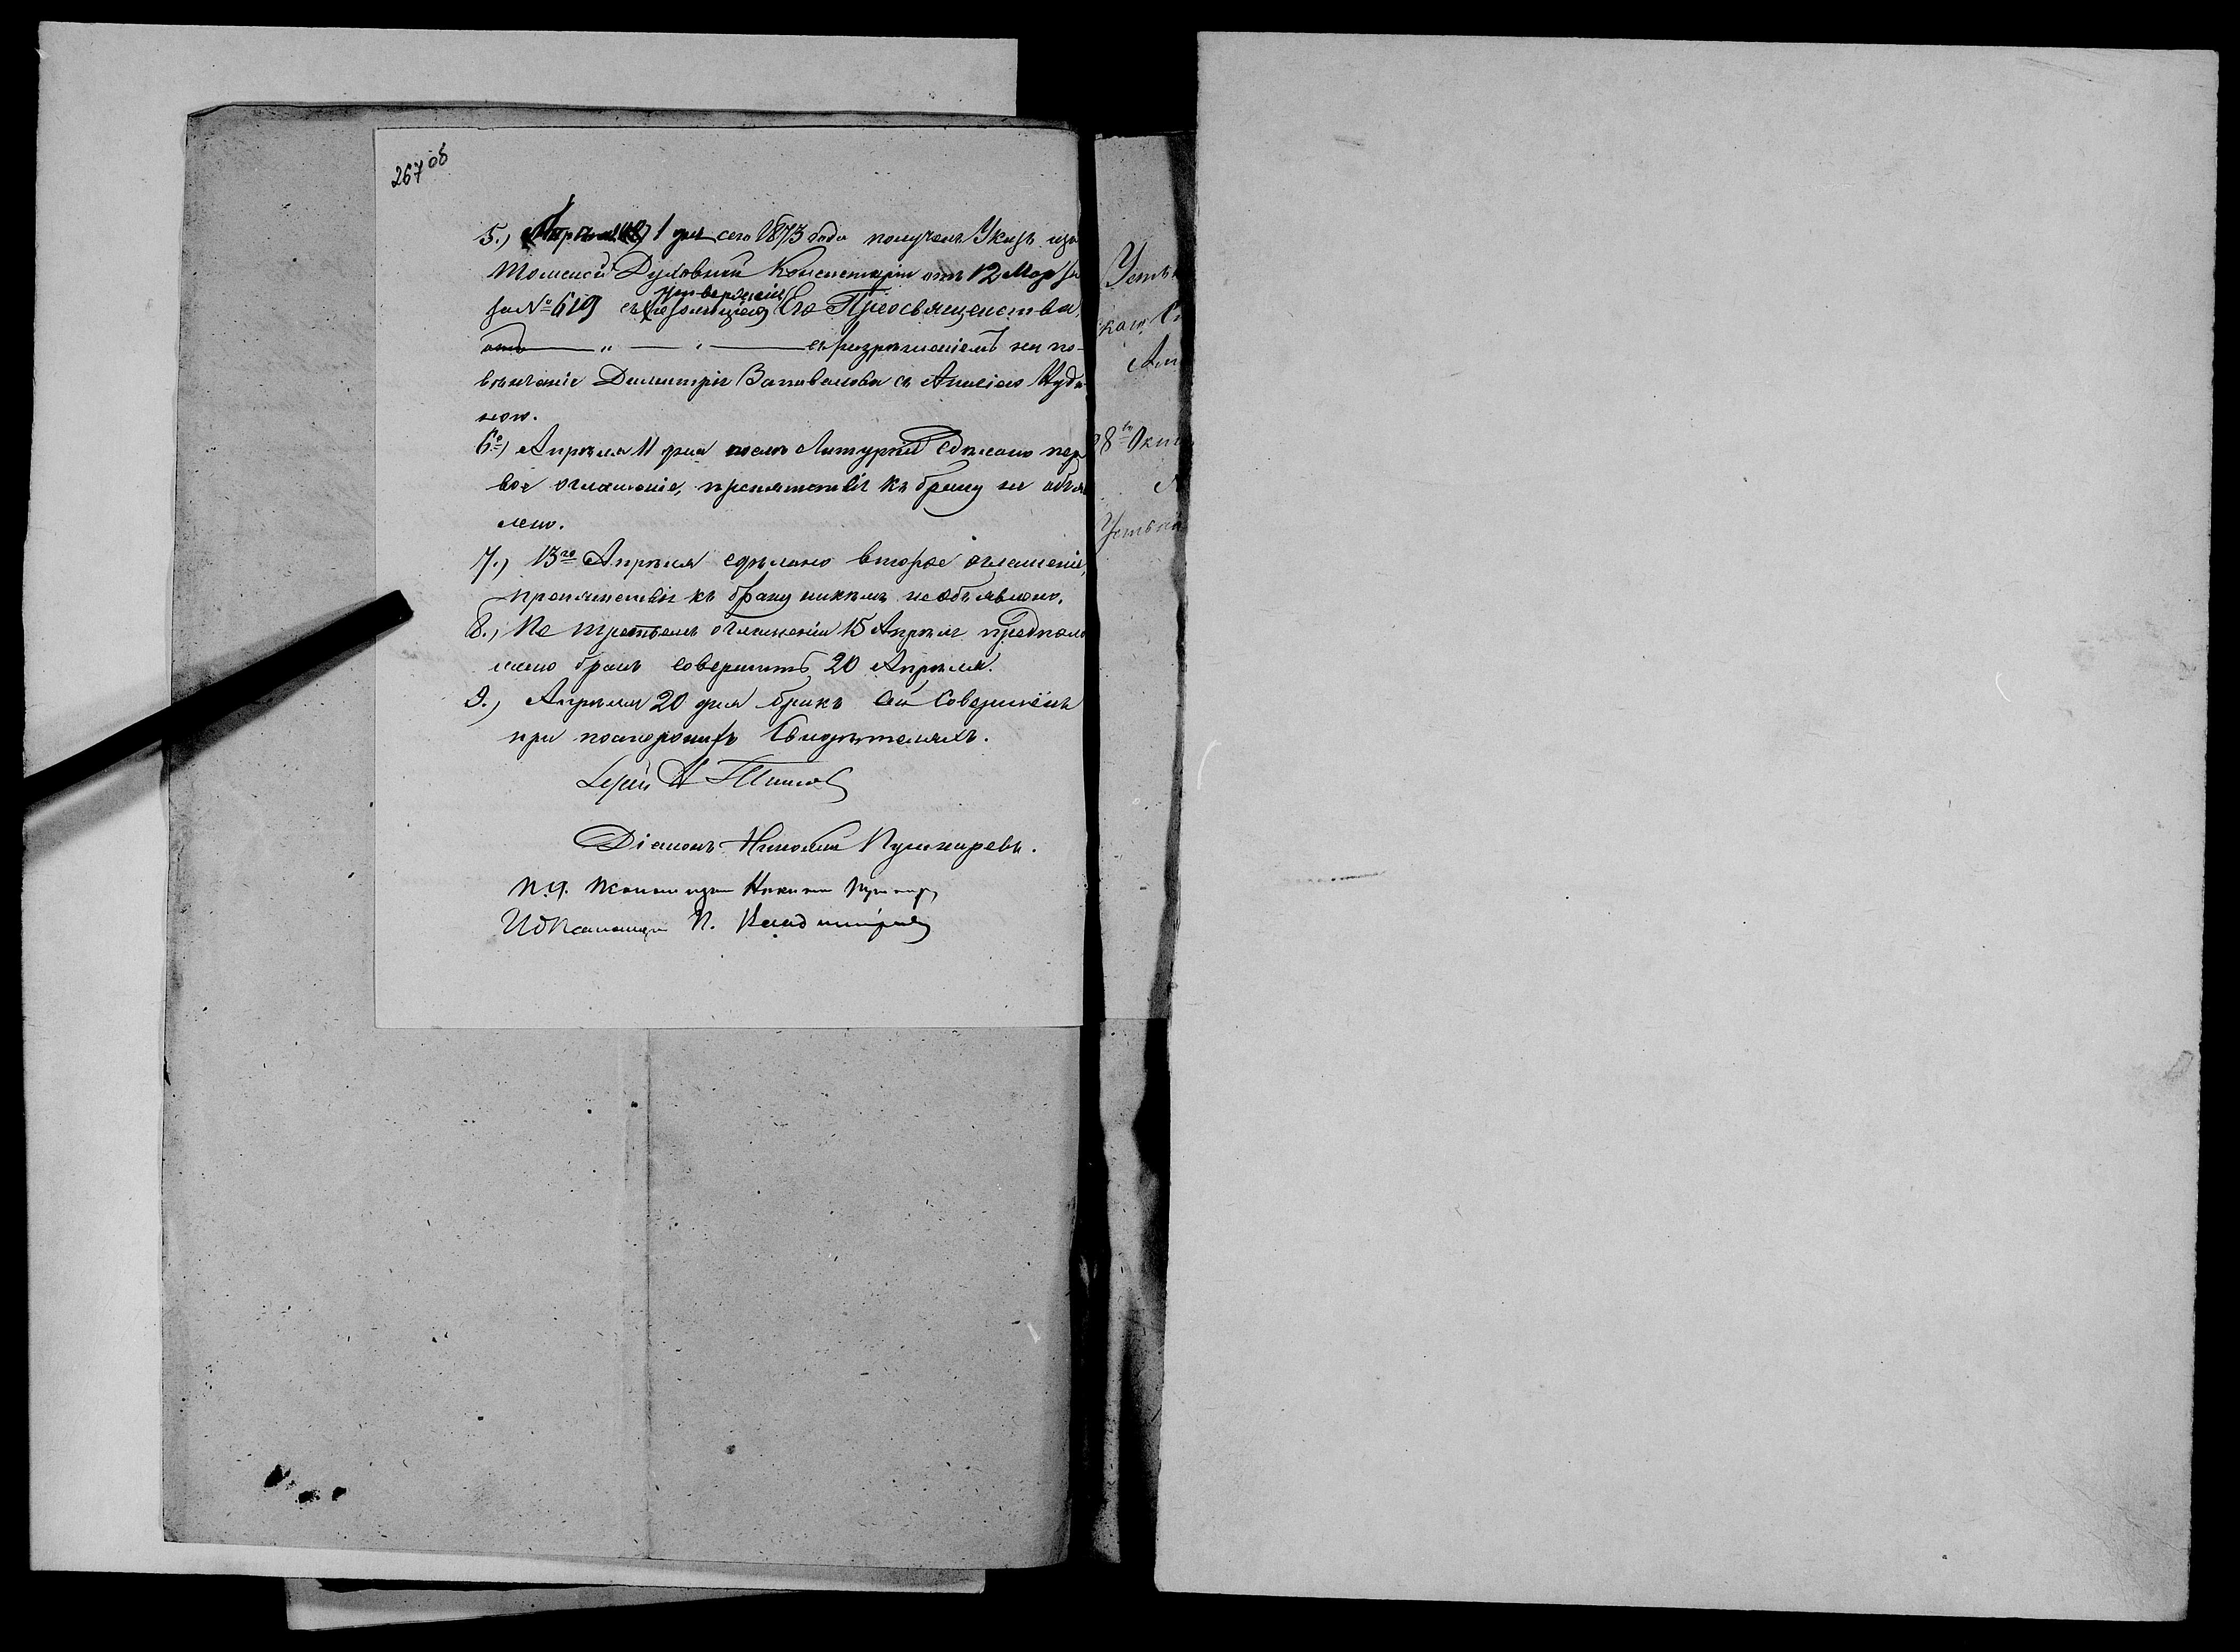 267 об
5.) Апрѣля 1 дня сего 1873 года полученъ Указъ изъ
Томской Духовной Консисторіи отъ 12 Мар
за № 619 съ резолюціею утвержденія Его Преосвященства,
отъ — " — " — съ разрѣшеніемъ на по-
вѣнчаніе Димитрія Запивалова съ Анисіею Чуди-
ною.
6е) Апрѣля 11 дня послѣ Литургіи Сдѣлано пер
вое оглашеніе, препятствія къ браку не объяв
лено.
7.) 13го Апрѣля сдѣлано второе оглашеніе,
препятствія къ браку никѣмъ необъявлено.
8.) По третьемъ оглашеніи 15 Апрѣля предполо
жено бракъ совершить 20 Апрѣля.
9.) Апрѣля 20 дня бракъ сей Совершёнъ
при постороннихъ Свидѣтеляхъ.
Іерей А
Діаконъ Николай Пушкаревъ.
И. д. Псаломщ Никита Пушкар
ИдПсаломщ П. Владиміровъ
Усть
каго
Ап
28го Окт
Усть